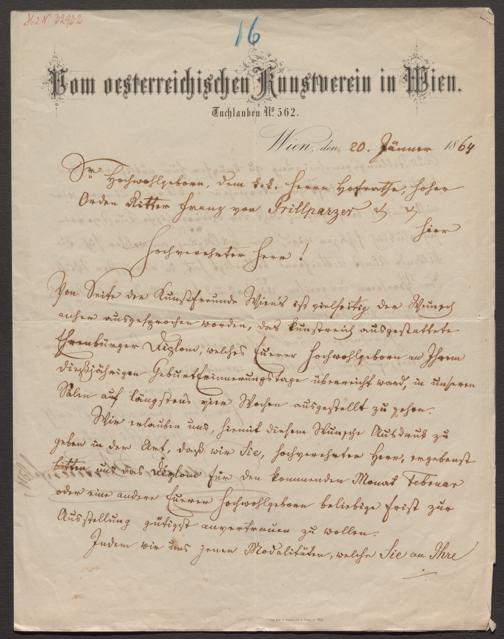 H.I.N. 32922
16
Vom oesterreichischen Kunstverein in Wien.
Tuchlauben No 562.
Wien, den 20. Jänner 1864
Sr Hochwohlgeborn, dem k.k. Herrn Hofrathe, hoher
Orden Ritter Franz von Grillparzer
hier
Hochverehrter Herr!
Von Seite der Kunstfreunde Wiens ist vielseitig der Wunsch
ausgesprochen worden, das kunstreich ausgestattete
Ehrenbürger Diplom, welches Euerer Hochwohlgeborn an Ihrem
dießjährigen Geburtserinnerungstage überreicht ward, in unseren
Sälen auf längstens vier Wochen ausgestellt zu sehen.
Wir erlauben uns, hiemit diesem Wunsche Ausdruck zu
geben in der Art, daß wir Sie, hochverehrter Herr, ergebenst
bitten uns das Diplom für den kommenden Monat Februar
oder eine andere Euerer Hochwohlgeborn beliebige Frist zur
Ausstellung gütigst anvertrauen zu wollen.
Indem wir uns jenen Modalitäten, welche Sie an Ihre